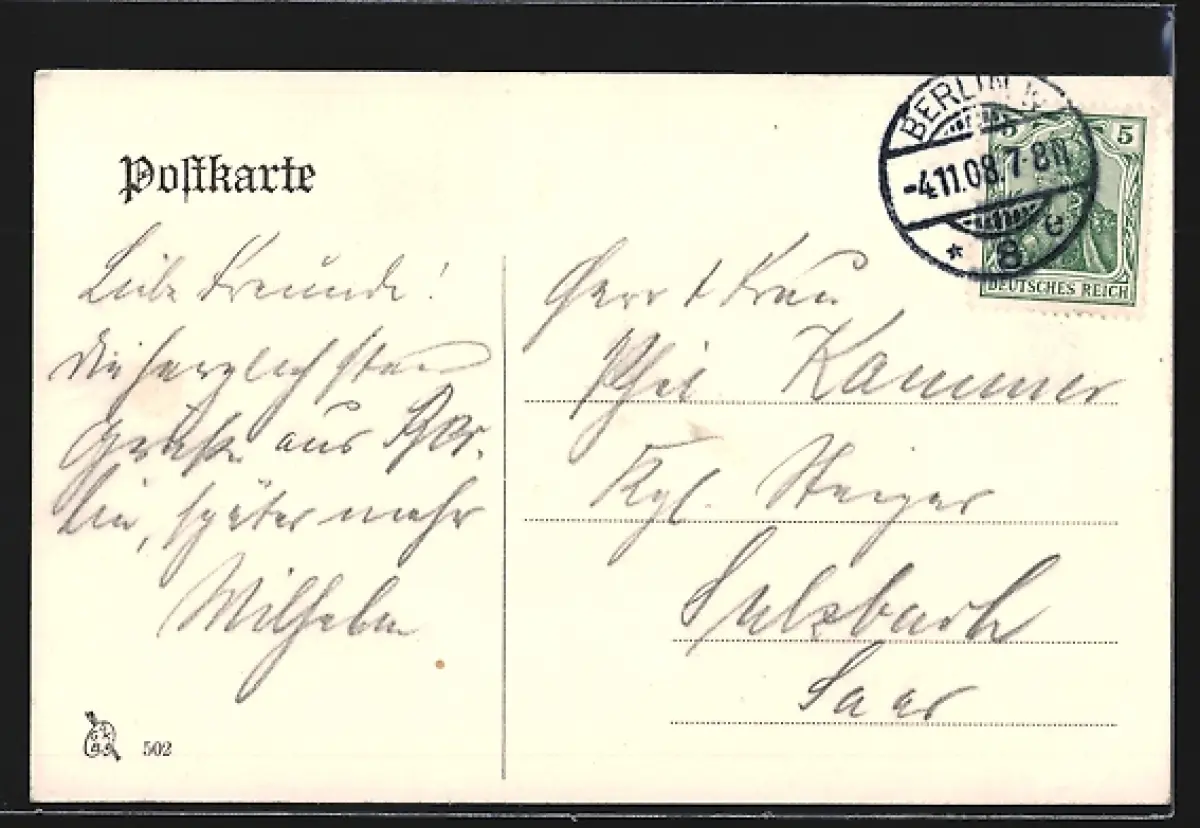 Postkarte
Liebe Freunde!
Die herzlichsten
Grüße aus Ber-
lin, später mehr
Wilhelm
502
BERLIN
-4.11.08.7-8N
* 8 e
5
DEUTSCHES REICH
Herr & Frau
Phil Kammer
Kgl. Steiger
Sulzbach
Saar